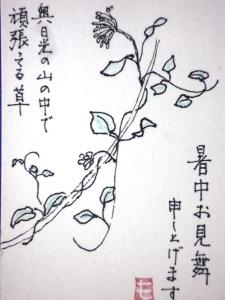 暑中お見舞
申し上げます
奥日光の山の中で
頑張てる草